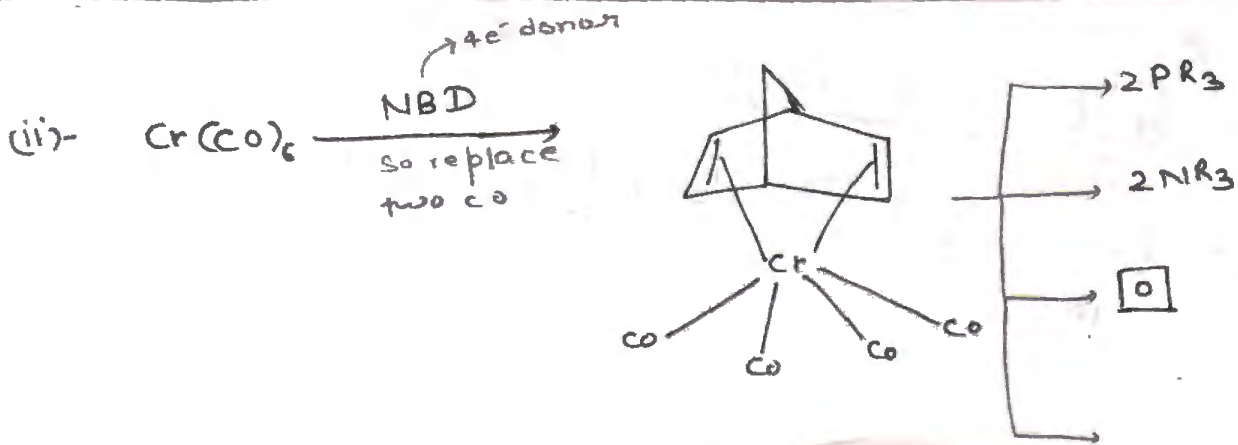 →4e⁻ donor
(ii)- Cr(CO)₆ NBD
so replace
two co
Cr
CO CO CO CO
→2PR₃
2NR₃
0